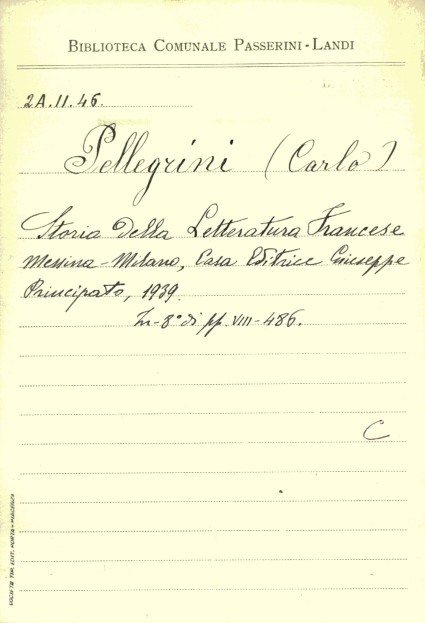 BIBLIOTECA COMUNALE PASSERINI-LANDI
2A.II.46.
Pellegrini (Carlo)
Storia della Letteratura Francese
Messina-Milano, Casa Editrice Giuseppe
Principato, 1939.
In-8° di pp. VIII-486.
C